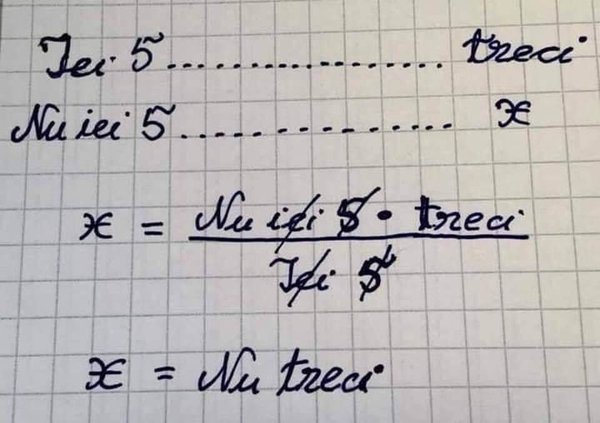 Iei 5.................. treci
Nu iei 5.................. x
x = Nu iei 5 • treci
Iei 5
x = Nu treci